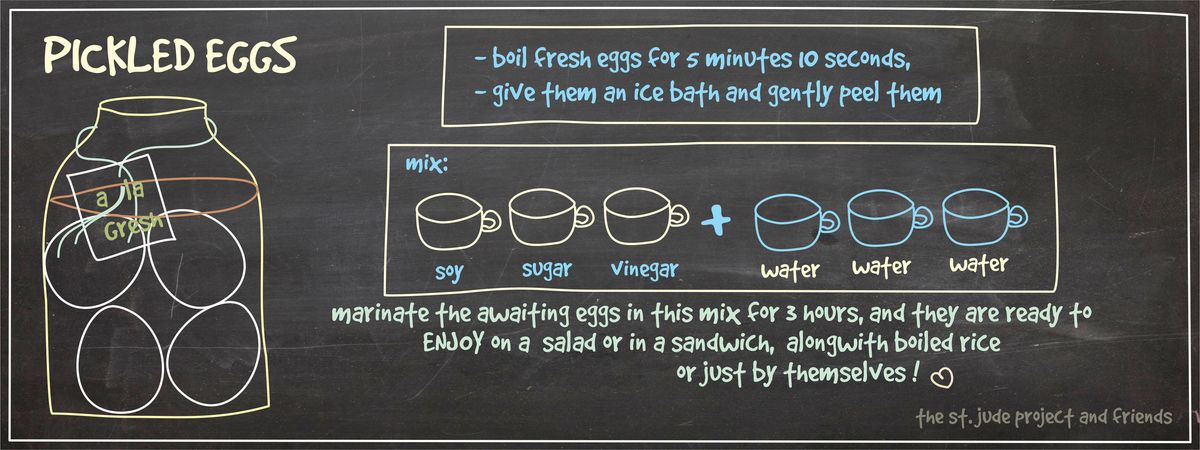 PICKLED EGGS
a la
Gresh
- boil fresh eggs for 5 minutes 10 seconds,
- give them an ice bath and gently peel them
mix:
+
soy sugar vinegar water water water
marinate the awaiting eggs in this mix for 3 hours, and they are ready to
ENJOY on a salad or in a sandwich, alongwith boiled rice
or just by themselves!
the st. jude project and friends